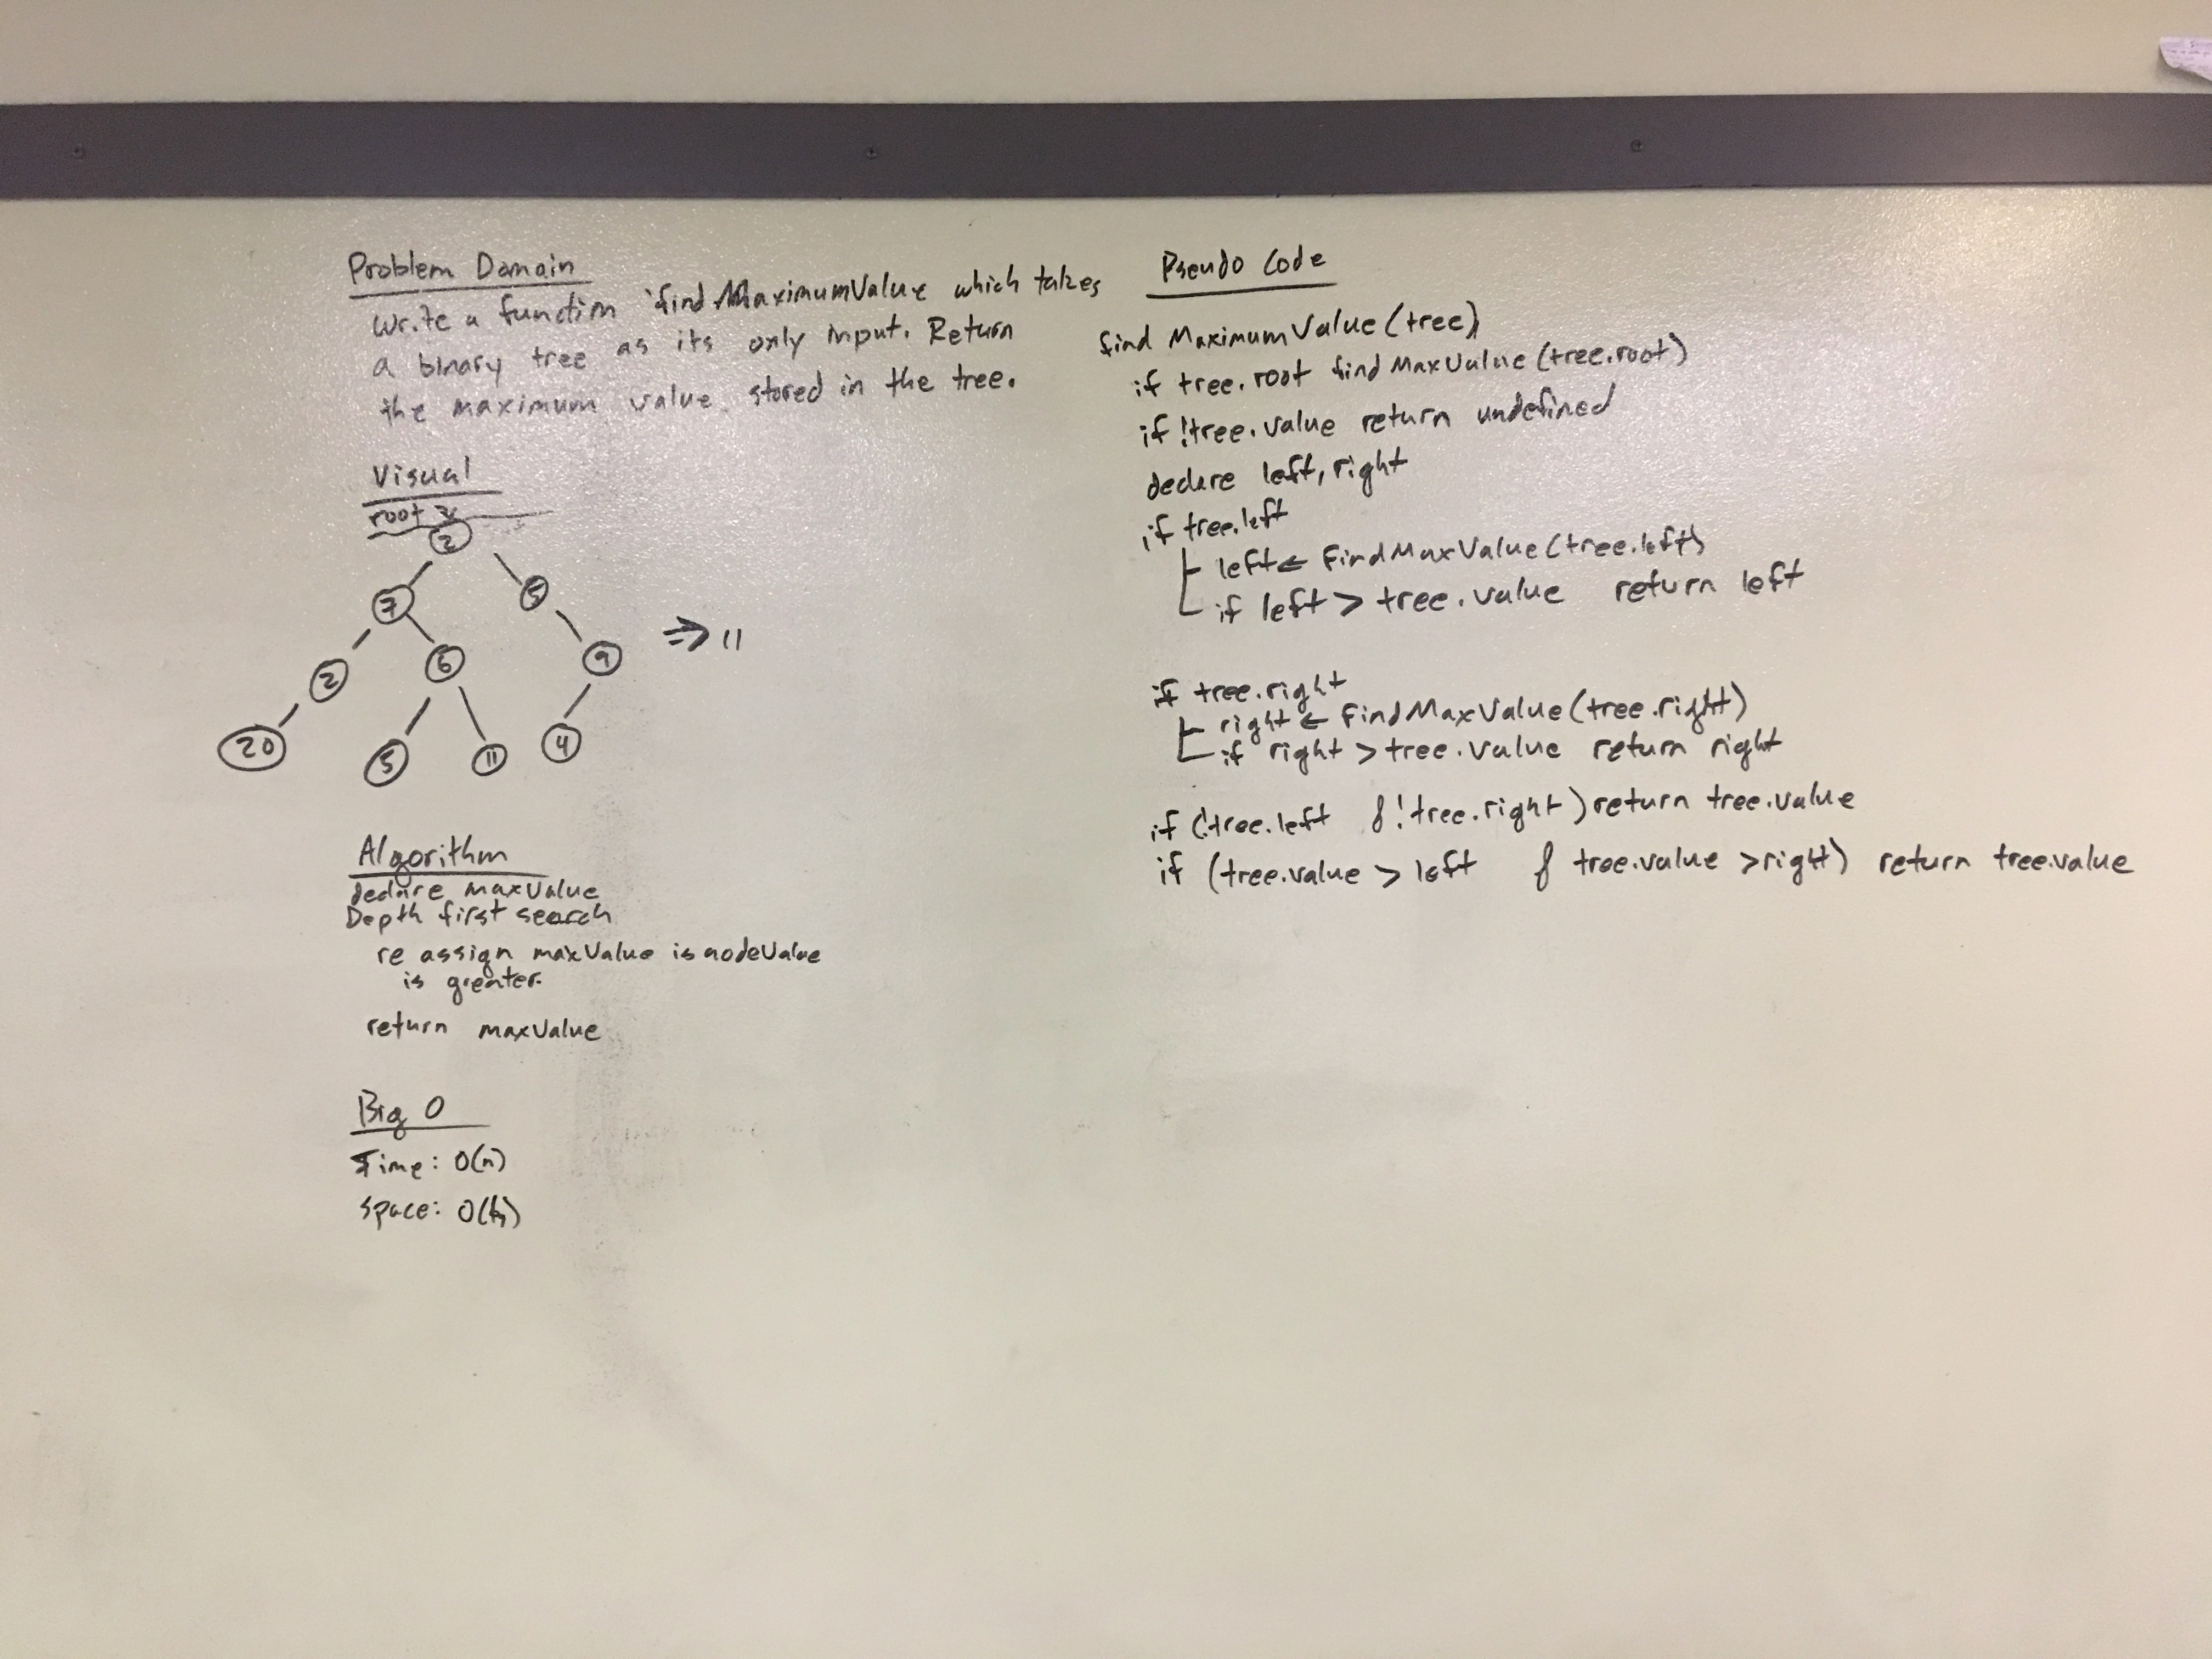 Problem Domain
Write a function find MaximumValue which takes
a binary tree as its only input. Return
the maximum value stored in the tree.
Visual
root
2
7 5
2 6 9
⇒ 11
20 5 11 4
Algorithm
declare maxValue
Depth first search
re assign maxValue is nodeValue
is greater.
return maxValue
Big O
Time: O(n)
Space: O(h)
Pseudo Code
find MaximumValue(tree)
if tree.root find MaxValue(tree.root)
if !tree.value return undefined
declare left, right
if tree.left
left ← FindMaxValue(tree.left)
if left > tree.value return left
if tree.right
right ← FindMaxValue(tree.right)
if right > tree.value return right
if (!tree.left & !tree.right) return tree.value
if (tree.value > left & tree.value > right) return tree.value